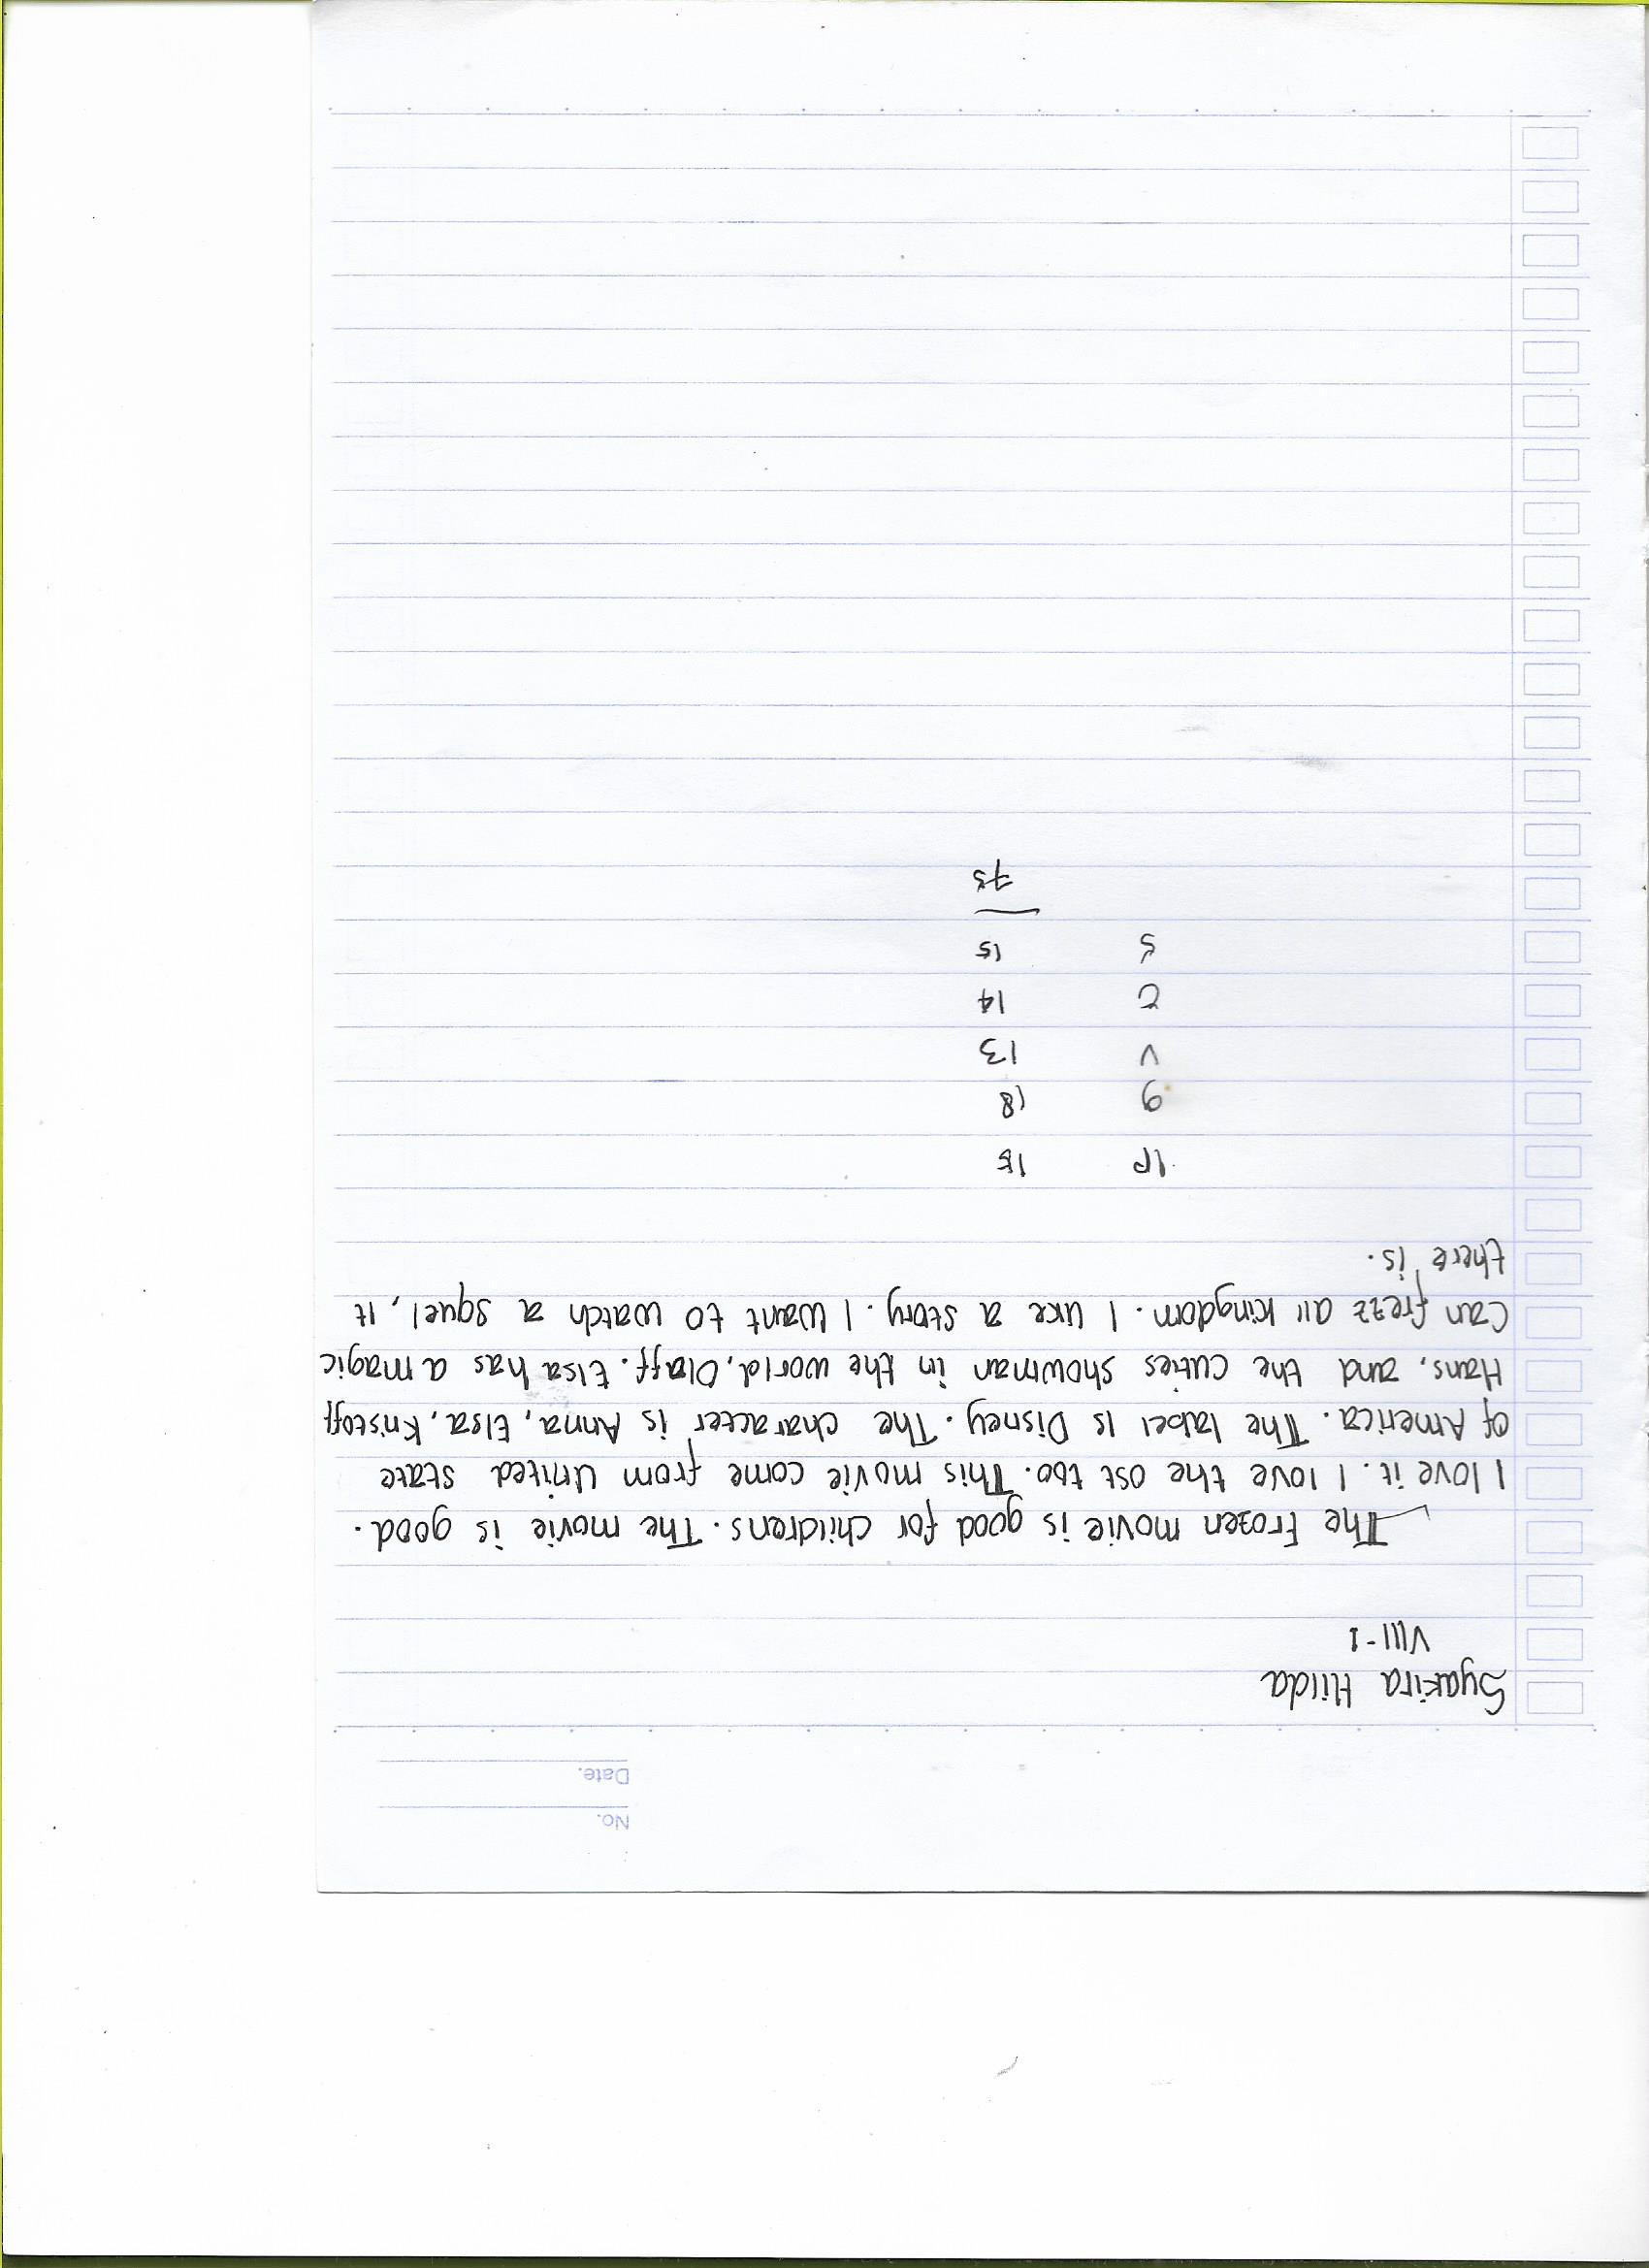 No.
Date.
Syakira Hilda
VIII-1
The Frozen movie is good for childrens. The movie is good.
I love it. I love the ost too. This movie come from United state
of America. The label is Disney. The character is Anna, Elsa, Kristoff
Hans, and the cuties snowman in the world, Olaff. Elsa has a magic
can frezz all kingdom. I like a story. I want to watch a squel, it
there is.
1P 15
9 18
V 13
C 14
S 15
75